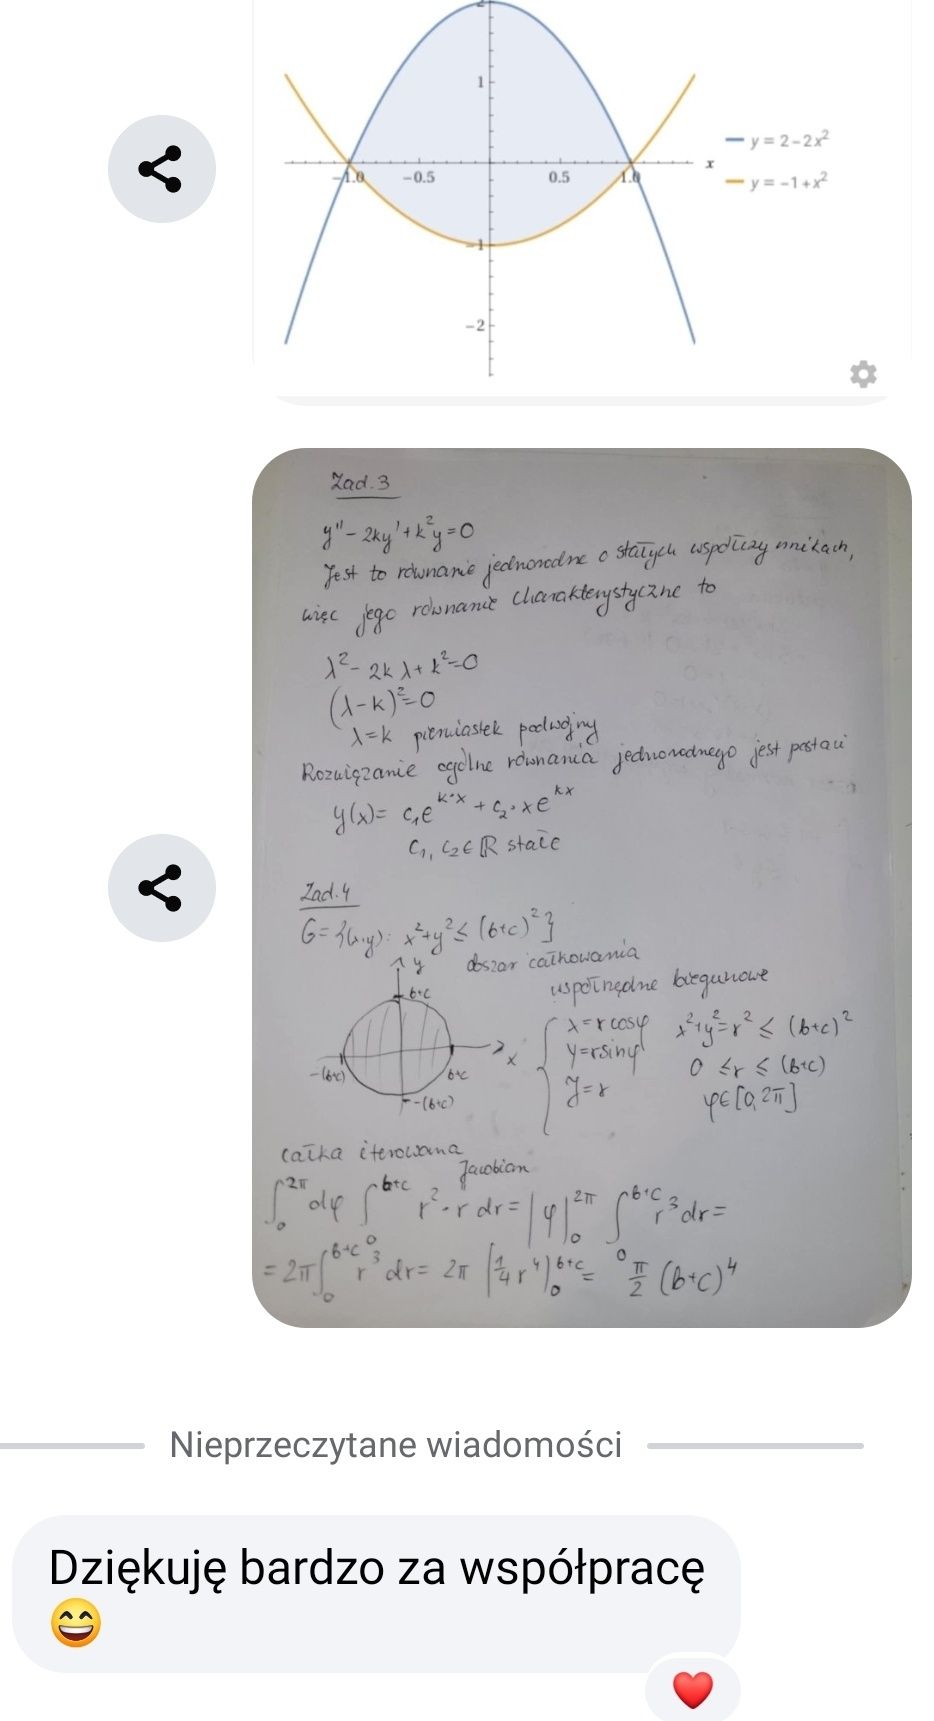 2
1
-1.0
-0.5
0.5
1.0
x
-1
-2
y = 2-2x²
y = -1+x²
Zad.3
y''- 2ky'+k²y=0
Jest to równanie jednorodne o stałych współczynnikach,
więc jego równanie charakterystyczne to
λ²- 2kλ+k²=0
(λ-k)²=0
λ=k pierwiastek podwójny
Rozwiązanie ogólne równania jednorodnego jest postaci
y(x)= c₁e^(k·x) + c₂·xe^(kx)
c₁, c₂∈ℝ stałe
Zad.4
G={(x,y): x²+y²≤(b+c)²}
obszar całkowania
y
b+c
x
-(b+c)
b+c
-(b+c)
współrzędne biegunowe
{ x=r cosφ
y=r sinφ
J=r
x²+y²=r²≤(b+c)²
0≤r≤(b+c)
φ∈[0,2π]
całka iterowana
Jacobian
∫₀^(2π) dφ ∫₀^(b+c) r²·r dr= |φ|₀^(2π) ∫₀^(b+c) r³dr=
=2π∫₀^(b+c) r³ dr= 2π [¼r⁴]₀^(b+c)= π/2 (b+c)⁴
Nieprzeczytane wiadomości
Dziękuję bardzo za współpracę
😄
❤️